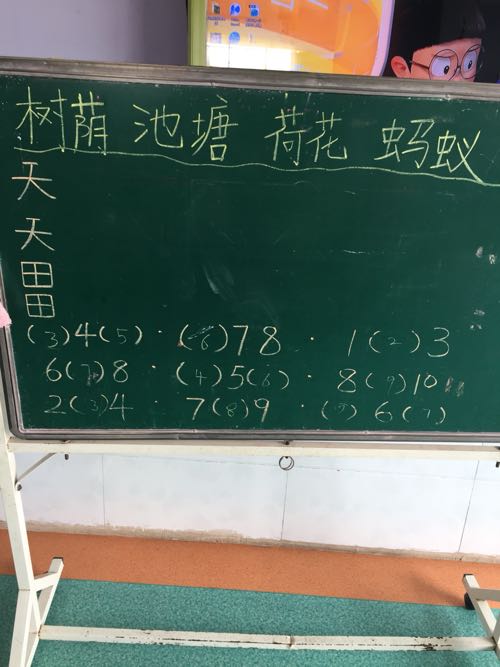 树荫 池塘 荷花 蚂蚁
天
天
田
田
(3)4(5) · (6)78 · 1(2)3
6(7)8 · (4)5(6) · 8(9)10
2(3)4 · 7(8)9 · (5)6(7)